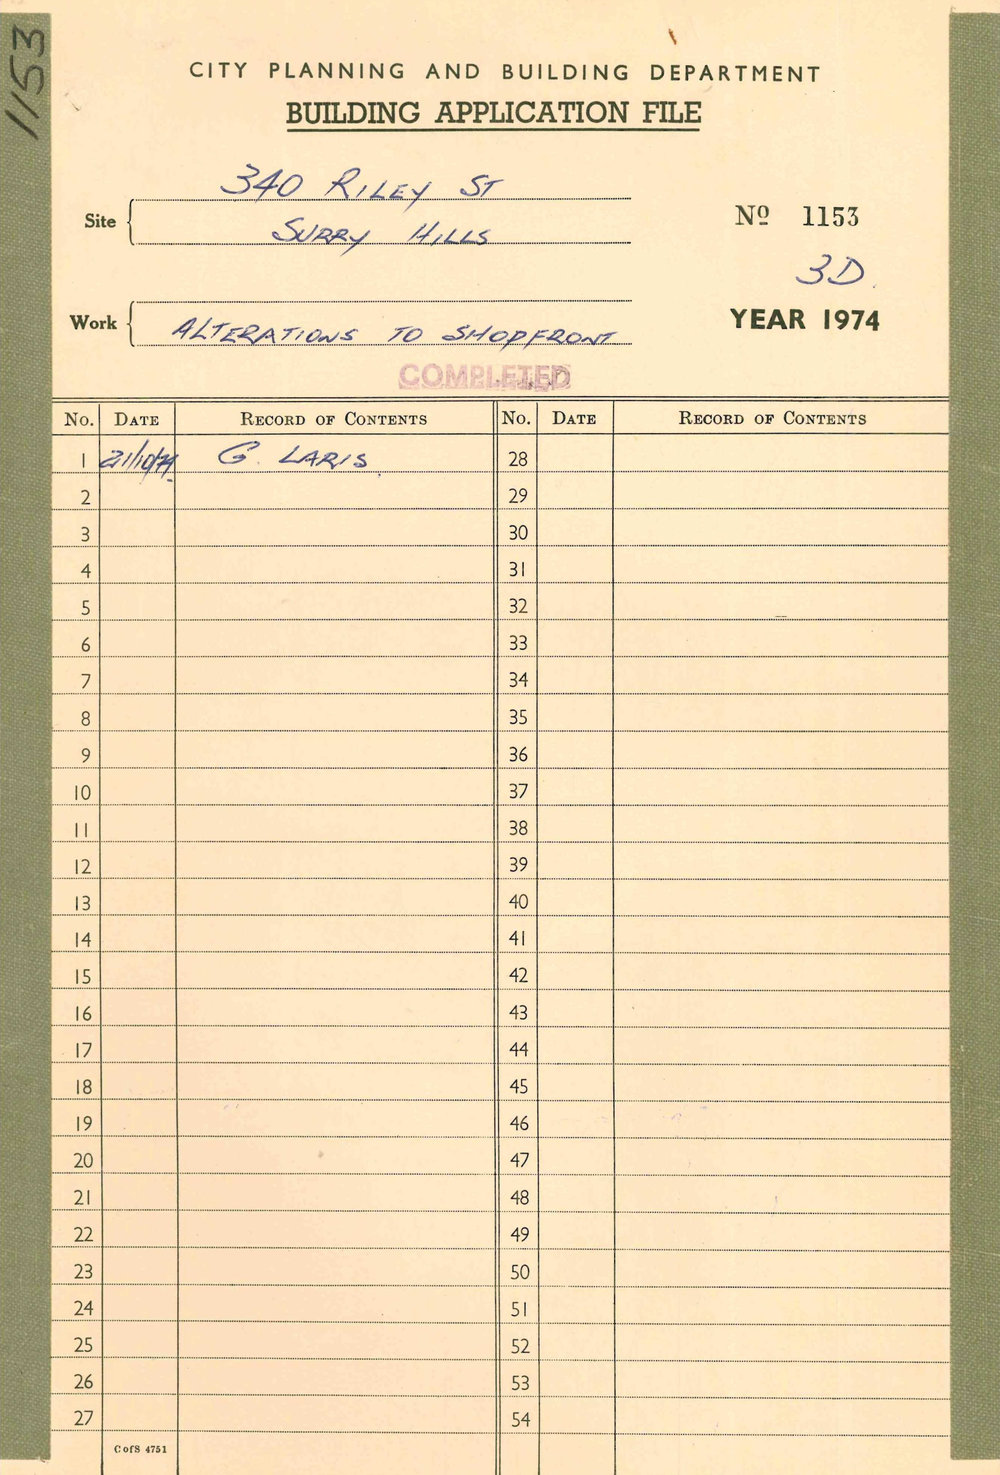 1153
CITY PLANNING AND BUILDING DEPARTMENT
BUILDING APPLICATION FILE
340 RILEY ST
Site
SURRY HILLS
Nº 1153
3D
Work
ALTERATIONS TO SHOPFRONT
YEAR 1974
COMPLETED
No. DATE RECORD OF CONTENTS No. DATE RECORD OF CONTENTS
1 21/10/74 G. LARIS 28
2 29
3 30
4 31
5 32
6 33
7 34
8 35
9 36
10 37
11 38
12 39
13 40
14 41
15 42
16 43
17 44
18 45
19 46
20 47
21 48
22 49
23 50
24 51
25 52
26 53
27 54
C of S 4751